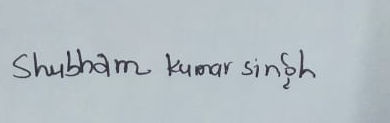 Shubham kumar singh